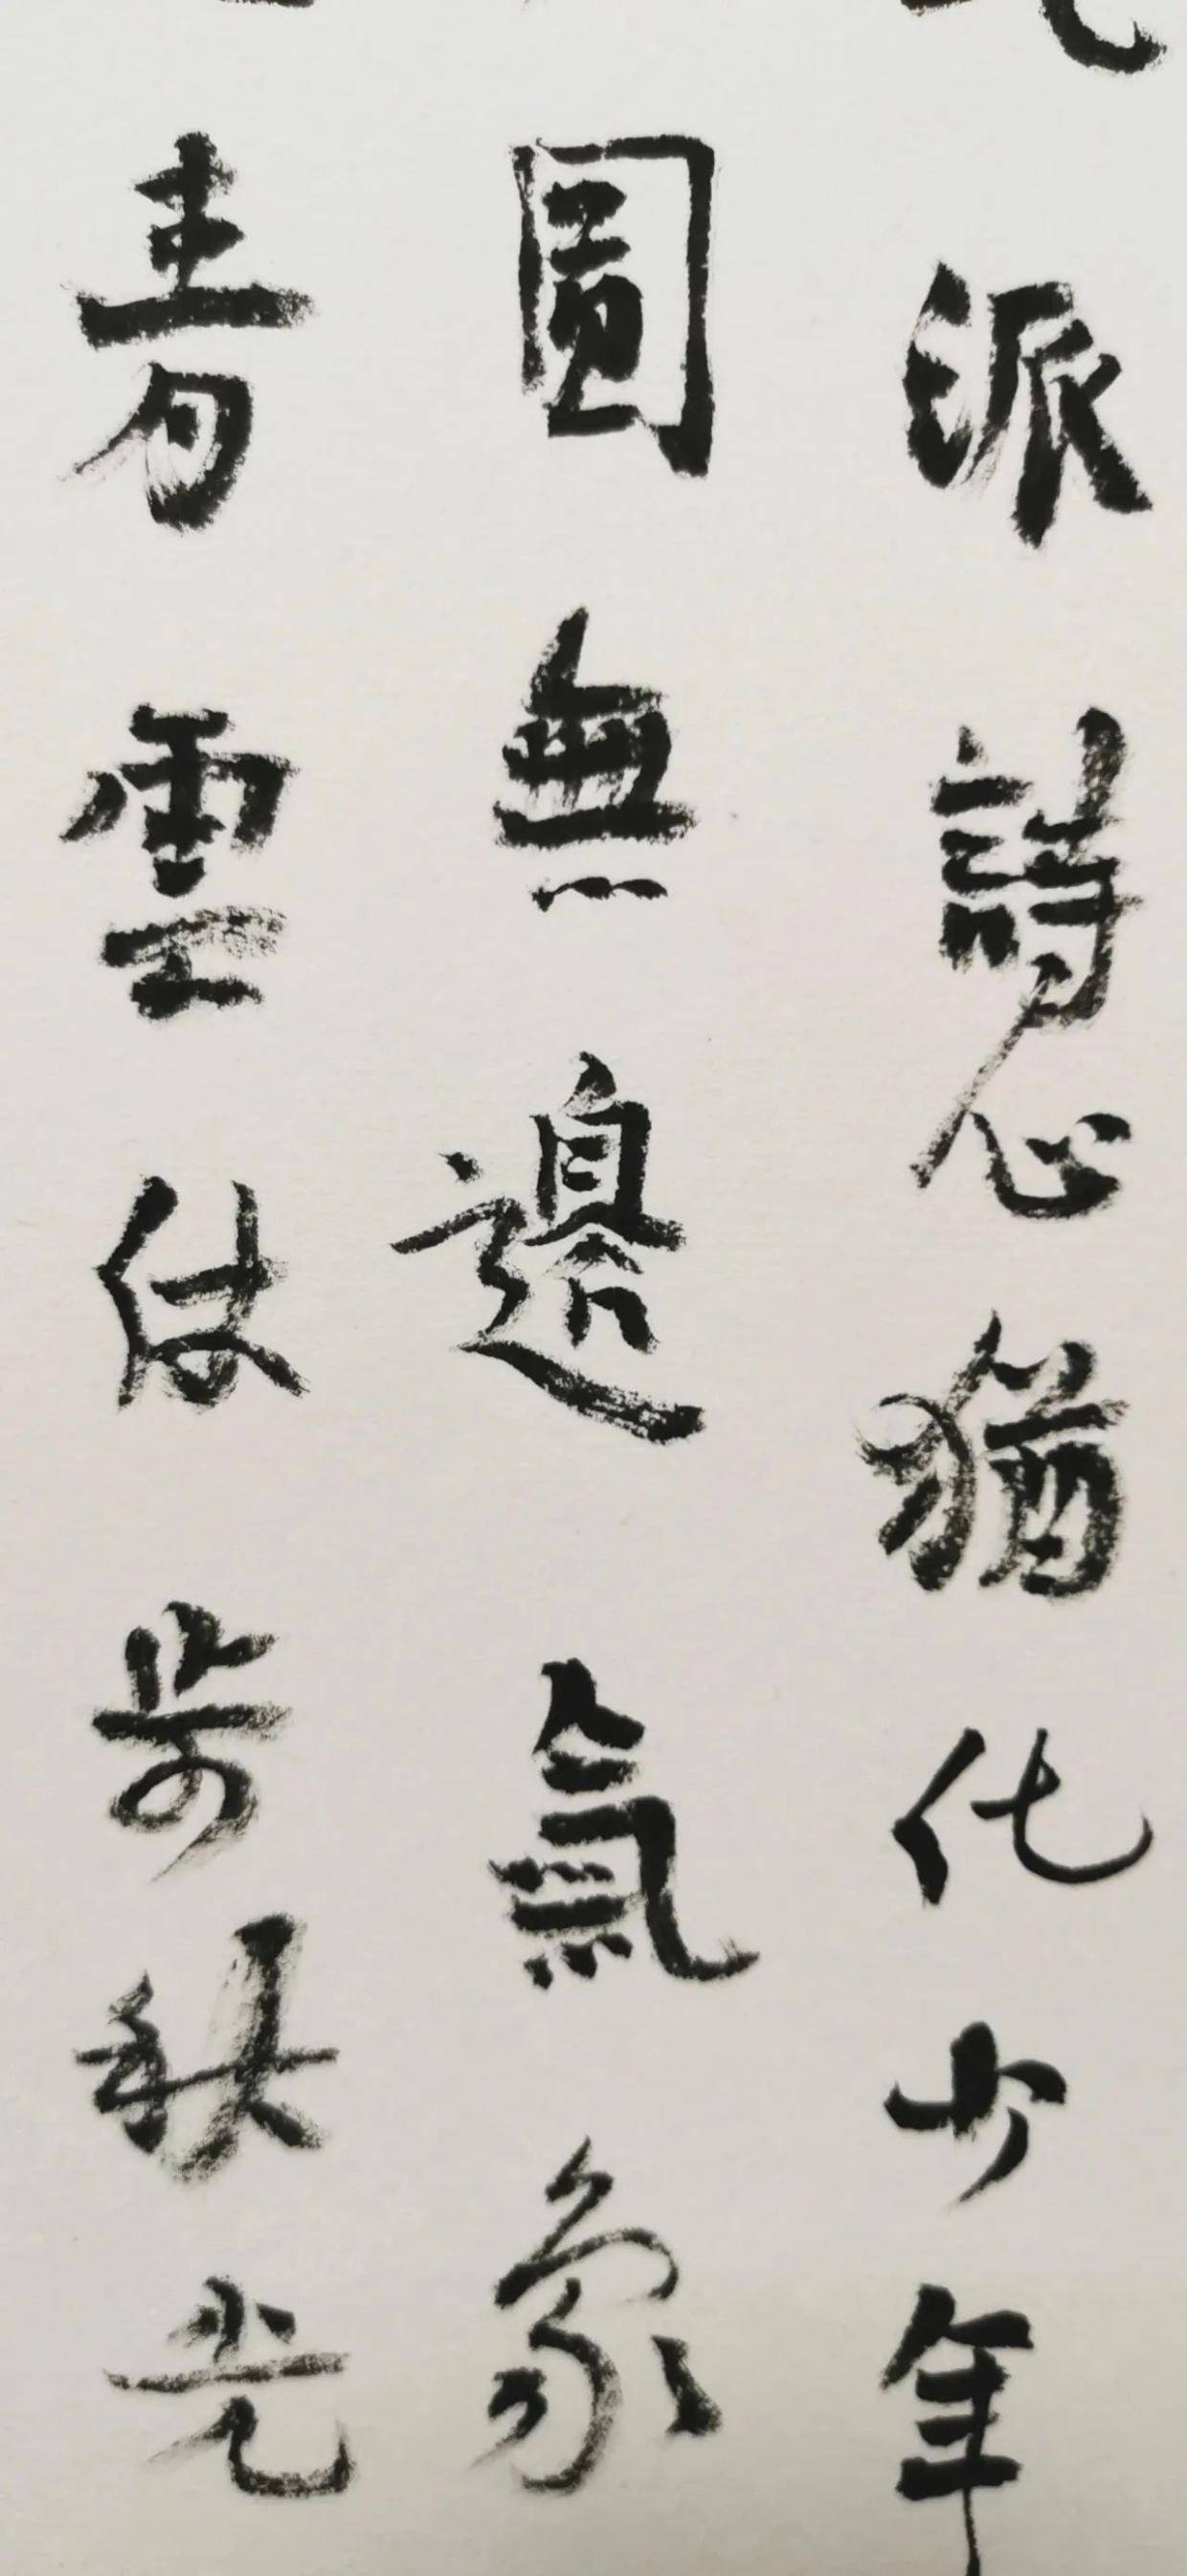 派詩心猶化少年
圓無邊氣象
青雲住步秋光